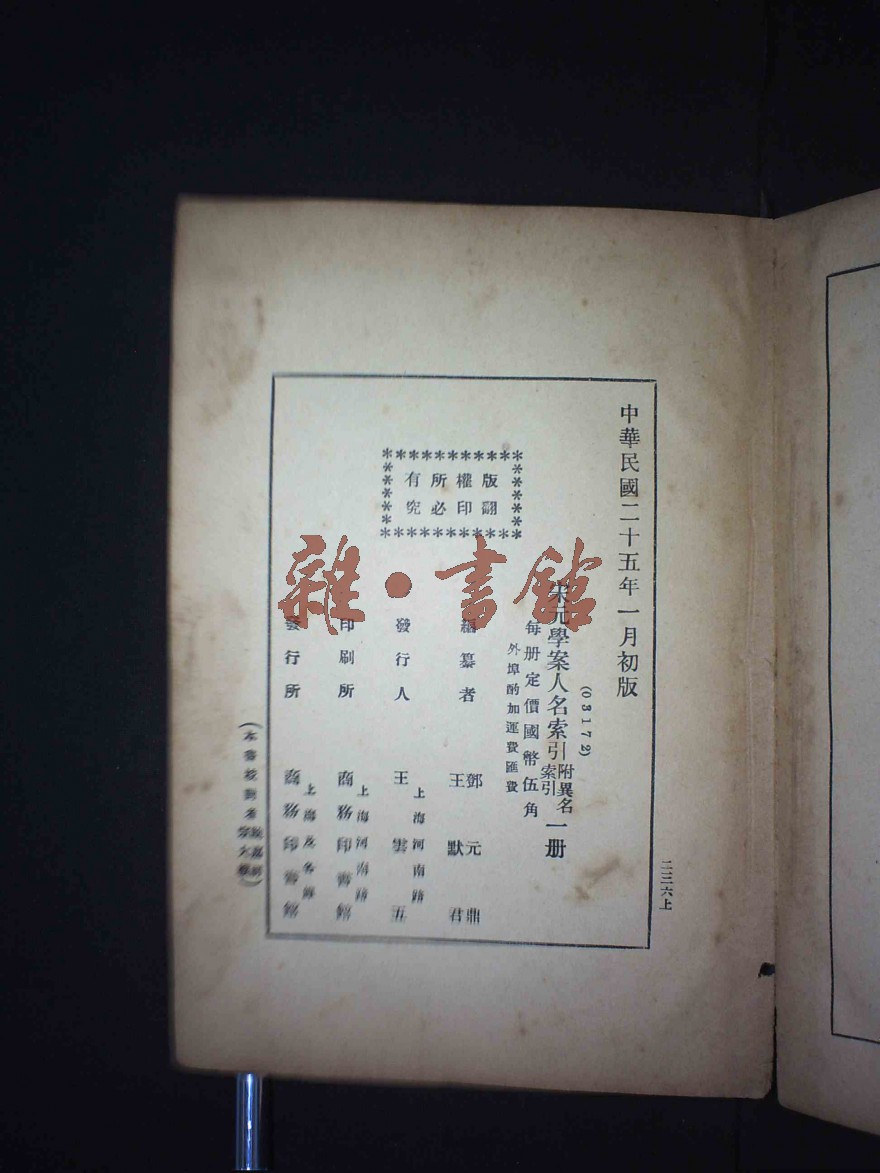 中華民國二十五年一月初版
(03172)
宋元學案人名索引附異名索引一册
每册定價國幣伍角
外埠酌加運費匯費
版權所有
翻印必究
編纂者
鄧元鼎
王默君
發行人
王雲五
上海河南路
印刷所
商務印書館
上海河南路
發行所
商務印書館
上海及各埠
二三六上
雜·書館